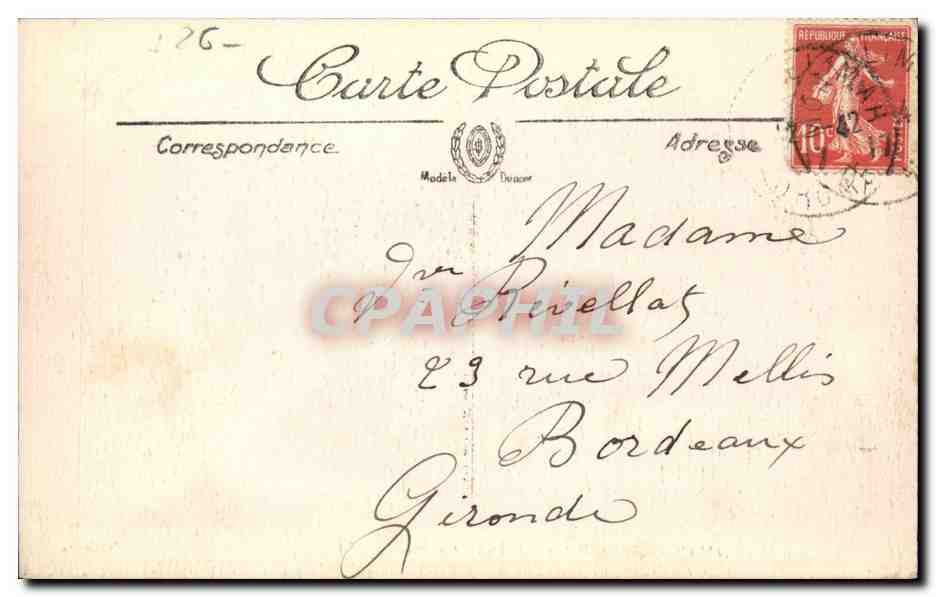 126-
Carte Postale
RÉPUBLIQUE FRANÇAISE
10c
POSTES
Correspondance
Adresse
Modèle Déposé
Madame
Vve Révellat
23 rue Mellis
Bordeaux
Gironde
CPAPHIL